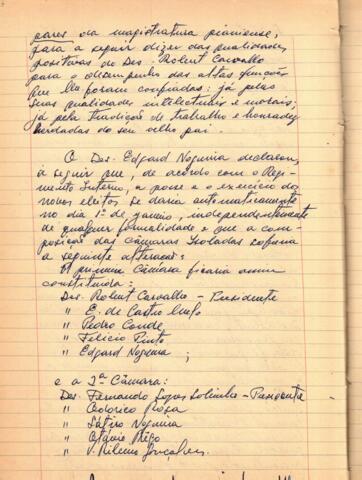 pares da magistratura piauiense,
para a seguir dizer das qualidades
positivas do Des. Robert Carvalho
para o desempenho das altas funções
que lhe foram confiadas: já pelas
suas qualidades intelectuais e morais;
já pela tradição de trabalho e honradez
herdadas do seu velho pai.
O Des. Edgard Nogueira declarou,
a seguir que, de acordo com o Regi-
mento Interno, a posse e o exercício dos
novos eleitos se daria automaticamente
no dia 1º de janeiro, independentemente
de qualquer formalidade e que a com-
posição das Câmaras Isoladas sofreria
a seguinte alteração:
A primeira Câmara ficaria assim
constituída:
Des. Robert Carvalho - Presidente
" E. de Castro
" Pedro Conde
" Felício Pinto
" Edgard Nogueira;
e a 2ª Câmara:
Des. Fernando Lopes Sobrinho - Presidente
" Teodorico Rosa
" Sátiro Nogueira
" Otávio Rêgo
" V. Ribeiro Gonçalves.